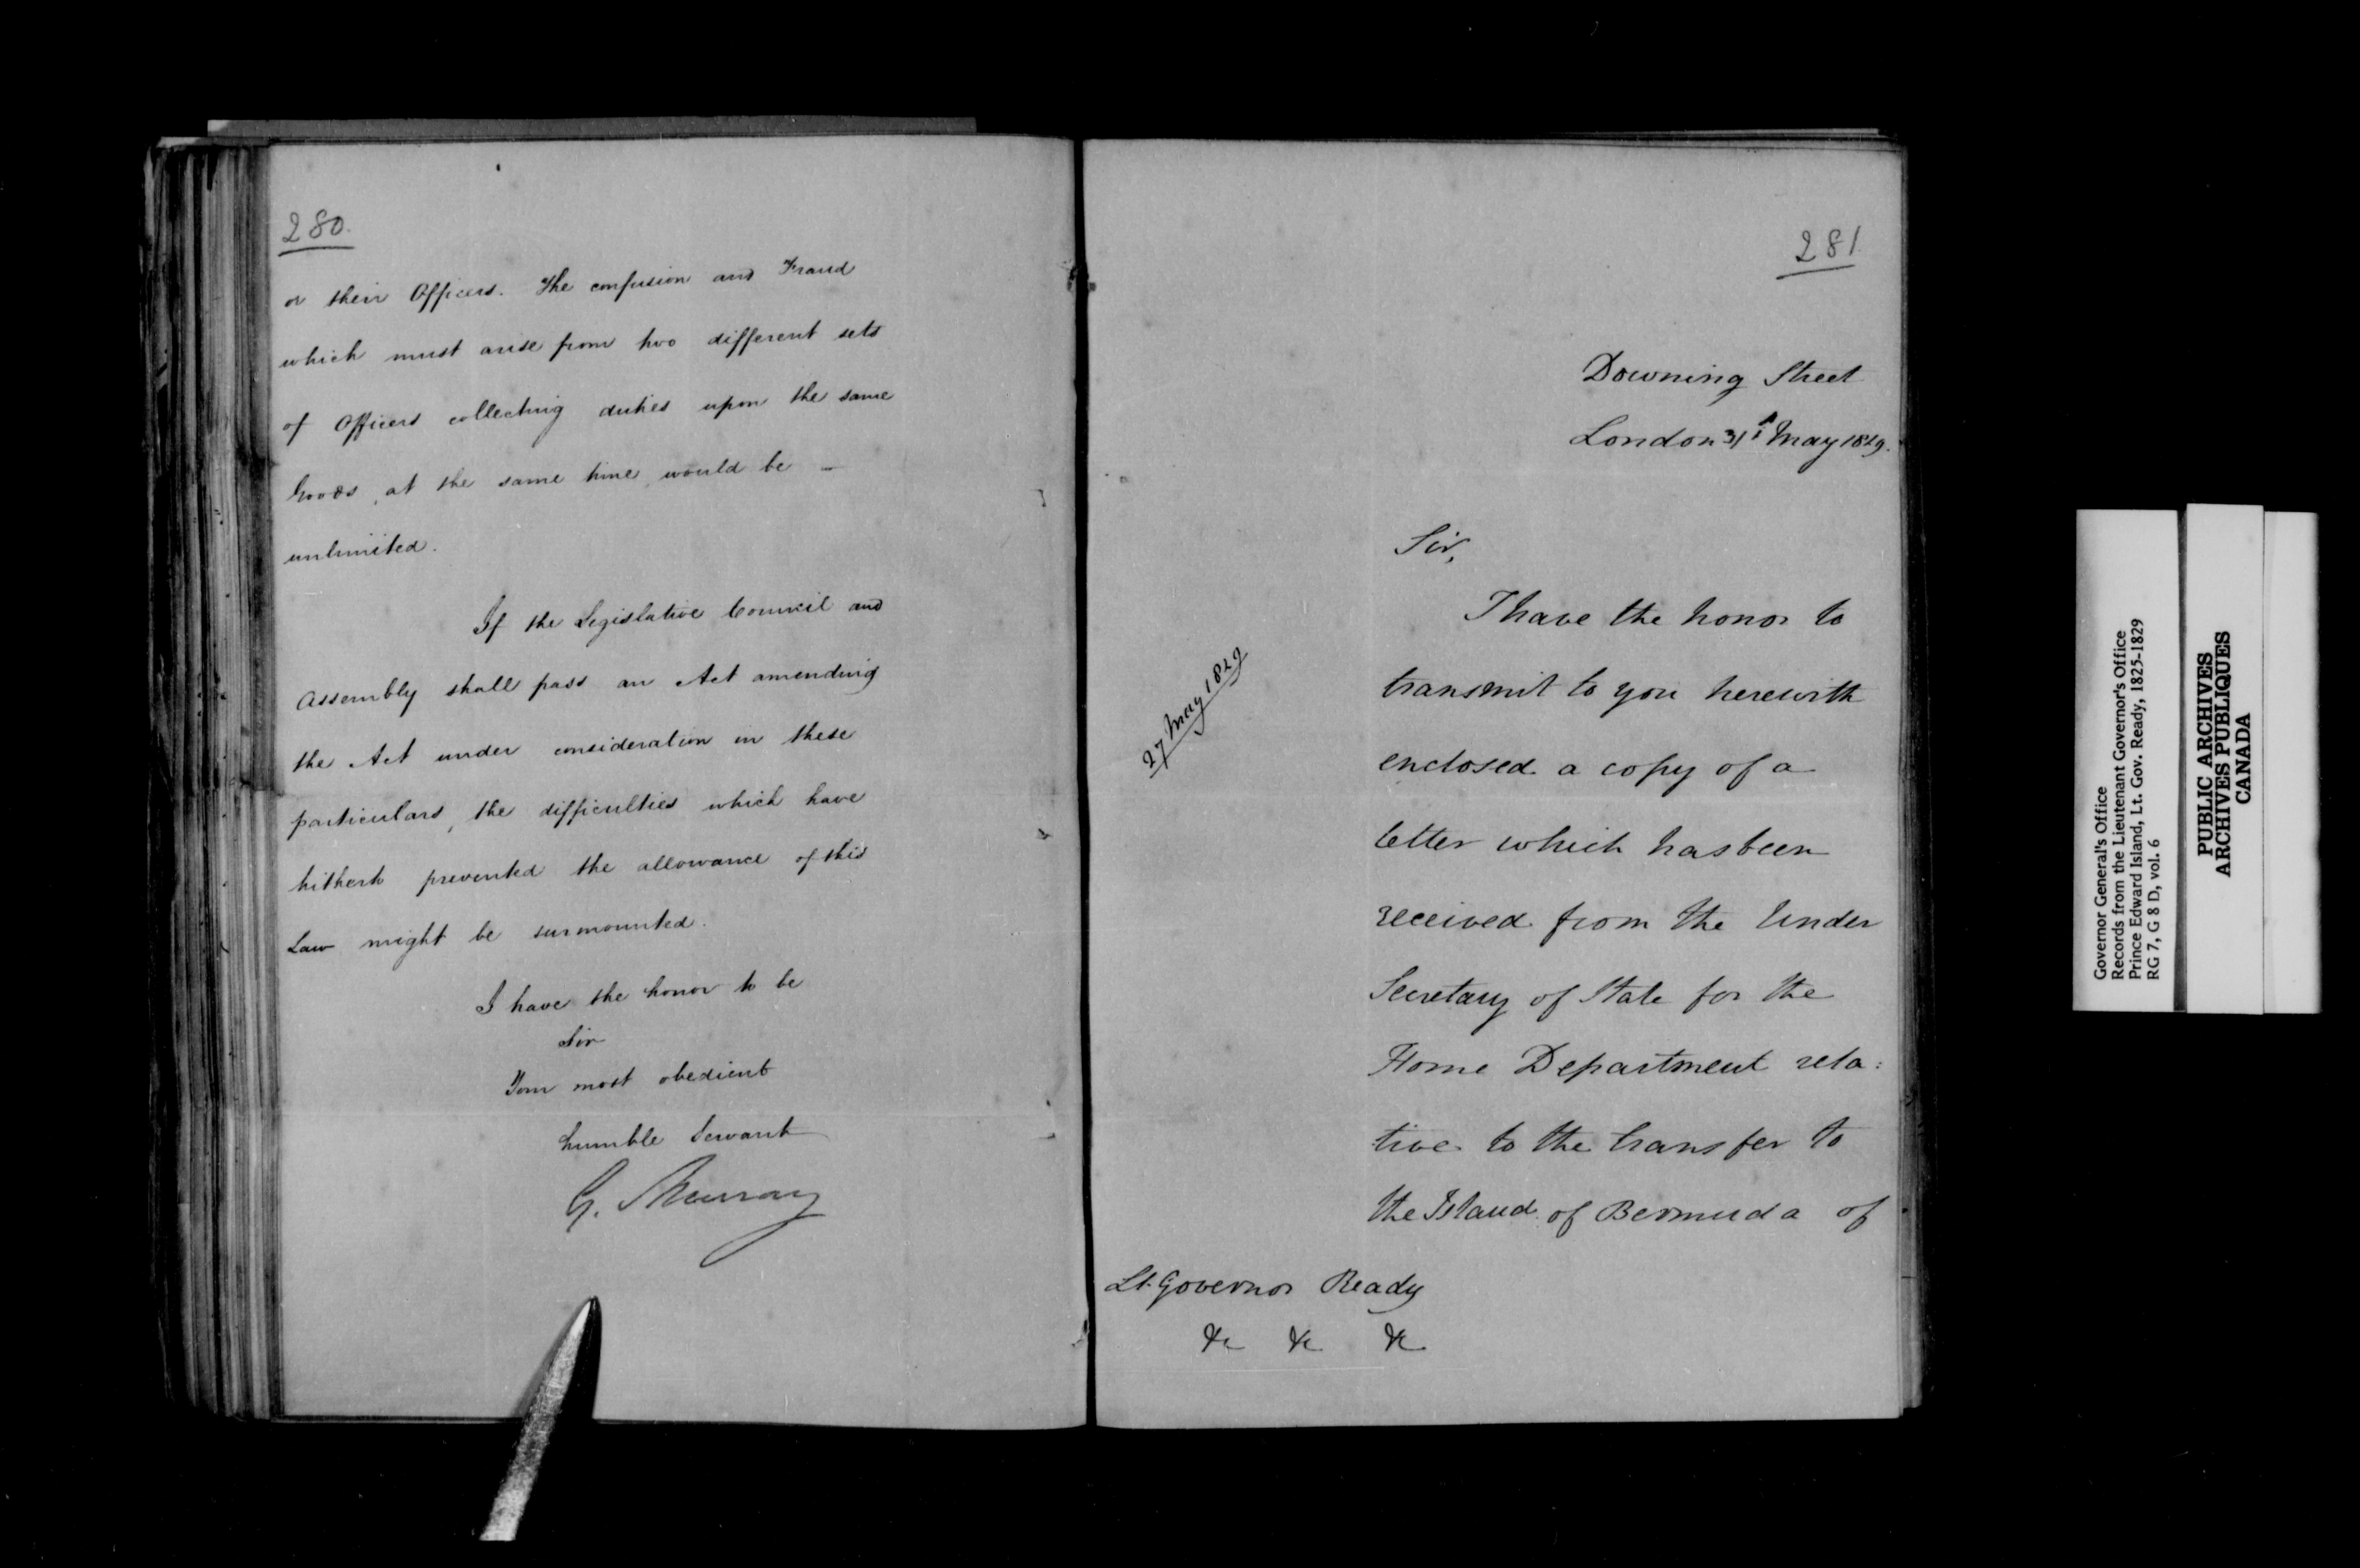 280.
or their Officers. The confusion and Fraud
which must arise from two different sets
of Officers collecting duties upon the same
Goods, at the same time, would be –
unlimited.
If the Legislative Council and
Assembly shall pass an Act amending
the Act under consideration in these
particulars, the difficulties which have
hitherto prevented the allowance of this
Law might be surmounted.
I have the honor to be
Sir
Your most obedient
humble Servant
G. Murray
281
Downing Street
London 31st May 1829.
Sir,
I have the honor to
transmit to you herewith
enclosed a copy of a
letter which has been
received from the Under
Secretary of State for the
Home Department rela:
tive to the transfer to
the Island of Bermuda of
27 May 1829
Lt. Governor Ready
&c &c &c
Governor General's Office
Records from the Lieutenant Governor's Office
Prince Edward Island, Lt. Gov. Ready, 1825-1829
RG 7, G 8 D, vol. 6
PUBLIC ARCHIVES
ARCHIVES PUBLIQUES
CANADA